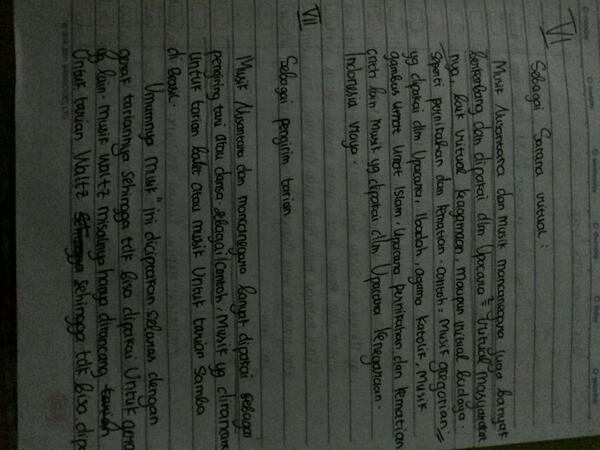 VI
Sebagai Sarana ritual :
Musik Nusantara dan musik mancanegara juga banyak
berkembang dan dipakai dlm Upcara² ritual masyarakat
nya, baik ritual keagamaan, maupun ritual budaya.
seperti pernikahan dan kematian. contoh = musik gregorian =
yg dipakai dlm Upacara, Ibadah, agama Katolik, Musik
gambus Umat Umat Islam, Upacara pernikahan dan kematian
cnth lain musik yg dipakai dlm Upacara kenegaraan.
Indonesia Raya.
VII
Sebagai pengirim tarian
Musik Nusantara dan mancanegara banyak dipakai sebagai
pengiring tari atau dansa. sebagai Contoh, Musik yg dirancang
Untuk tarian balet atau musik Untuk tarian Samba
di Brasil.
Umumnya musik ini diciptakan selaras dengan
gerak tariannya sehingga tdk bisa dipakai Untuk gera
yg lain. musik waltz misalnya hanya dirancang
Untuk tarian Waltz sehingga tdk bisa dipa